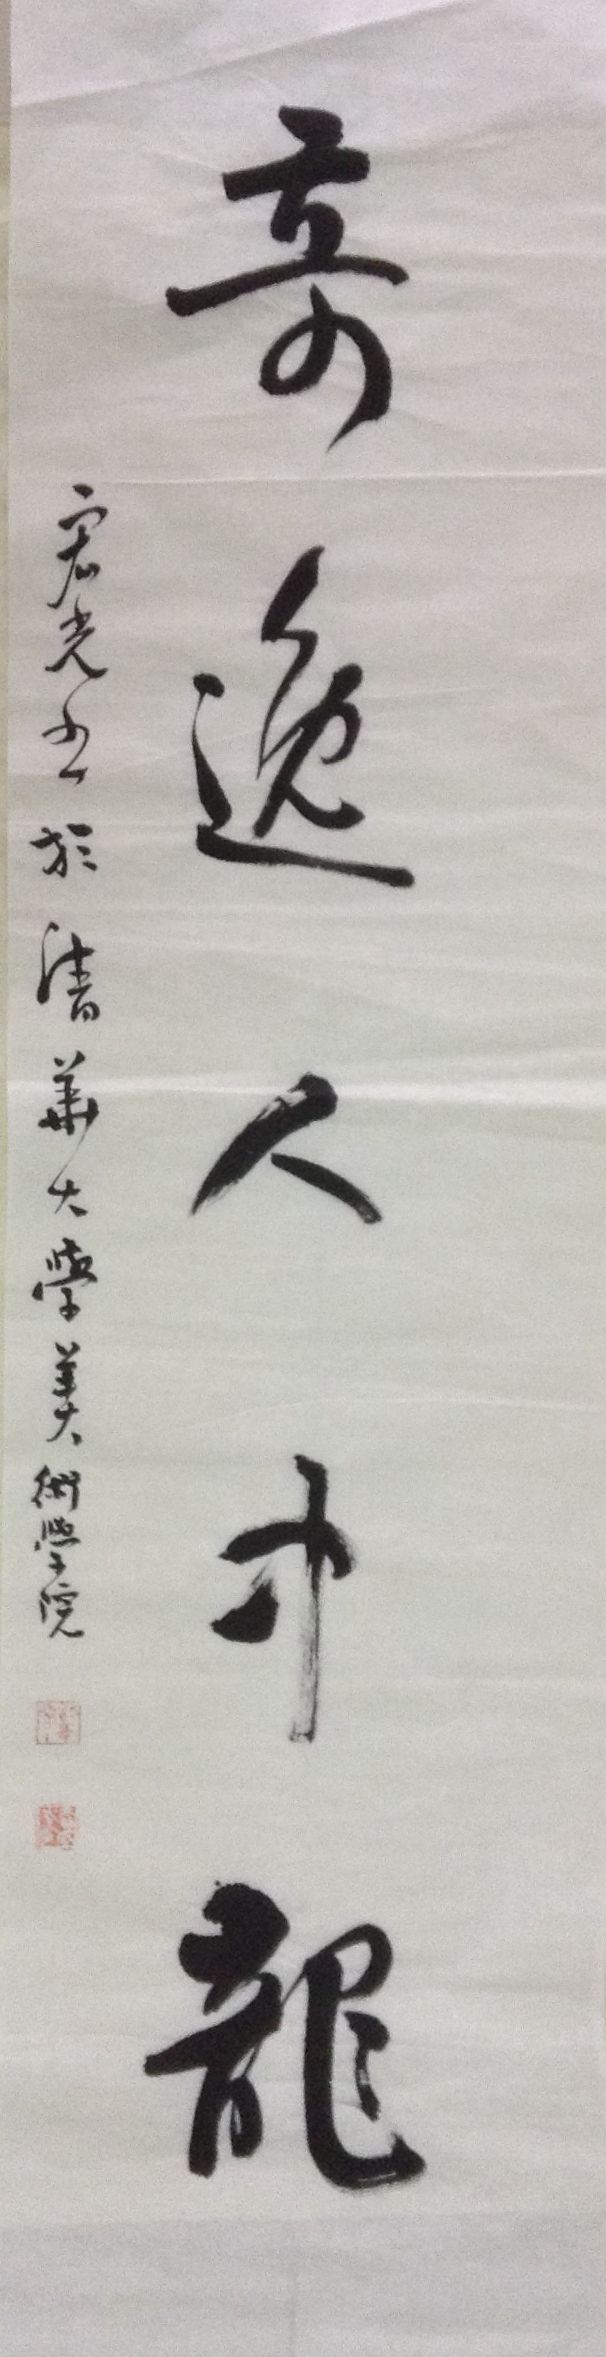 奇逸人中龍
宏光书於清華大學美術學院